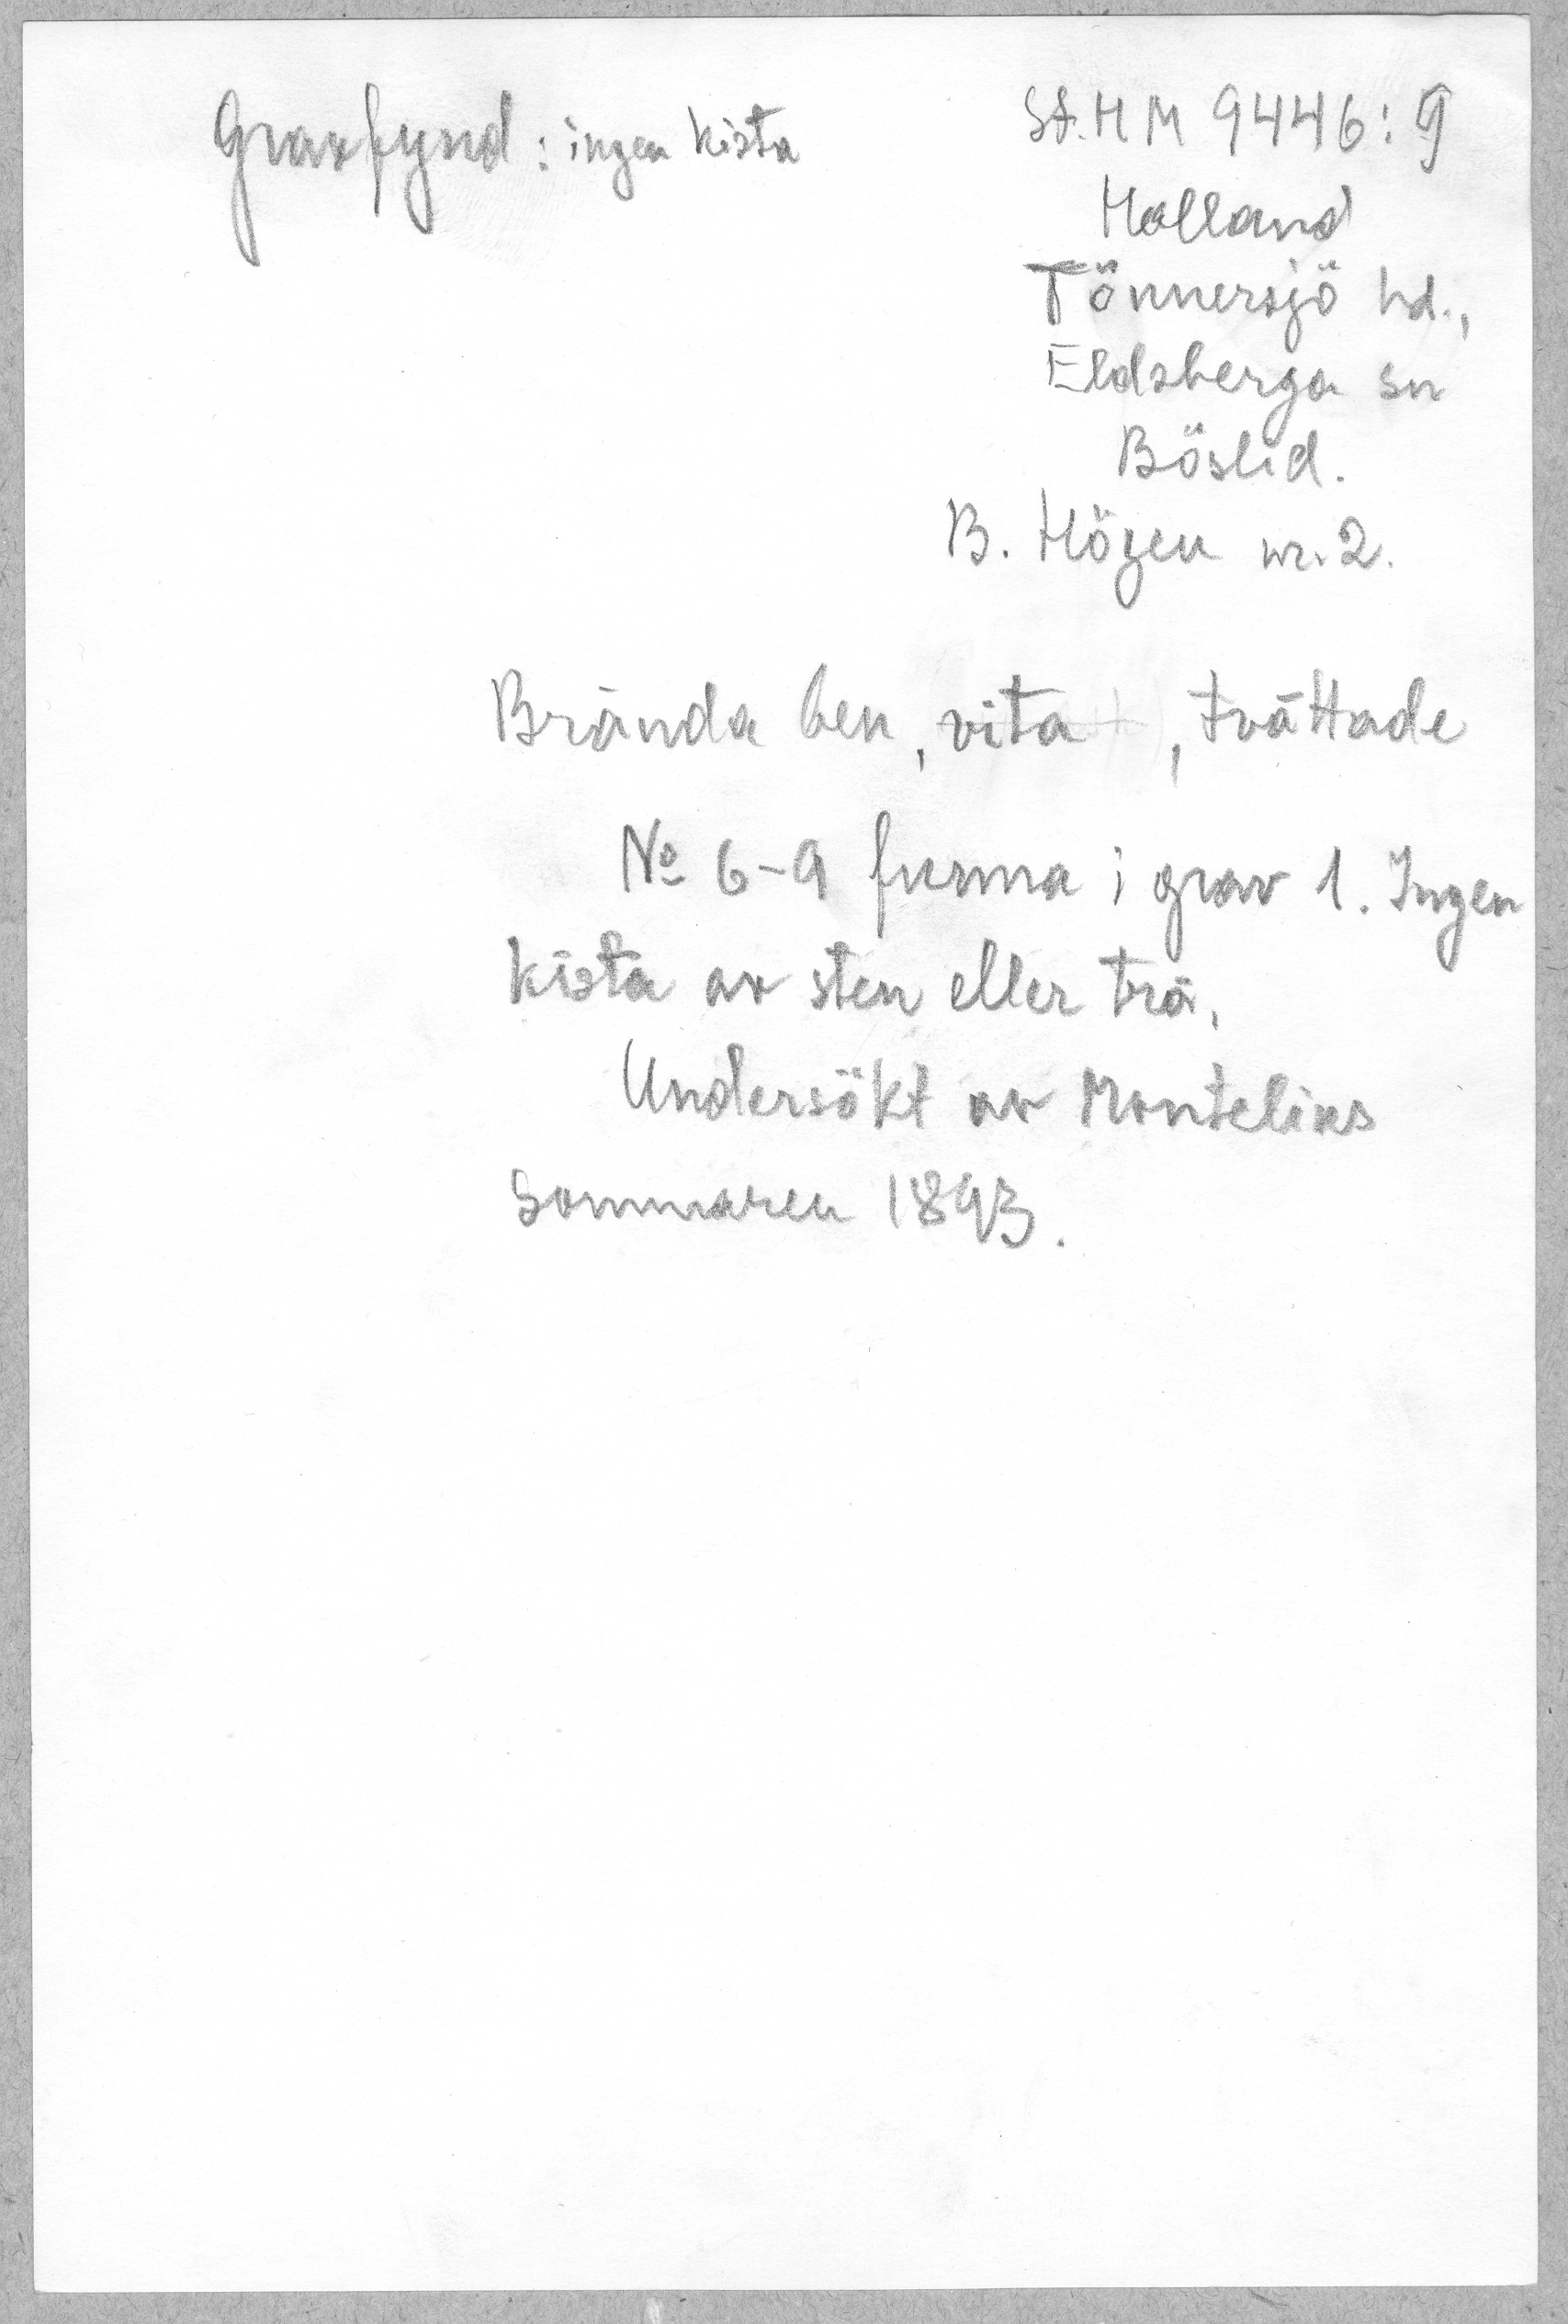 Gravfynd: ingen kista
St. H M 9446:9
Halland
Tönnersjö hd.,
Eldsberga sn
Böslid.
B. Högen nr. 2.
Brända ben, vita, tvättade
№ 6-9 funna i grav 1. Ingen
kista av sten eller trä.
Undersökt av Montelius
Sommaren 1893.